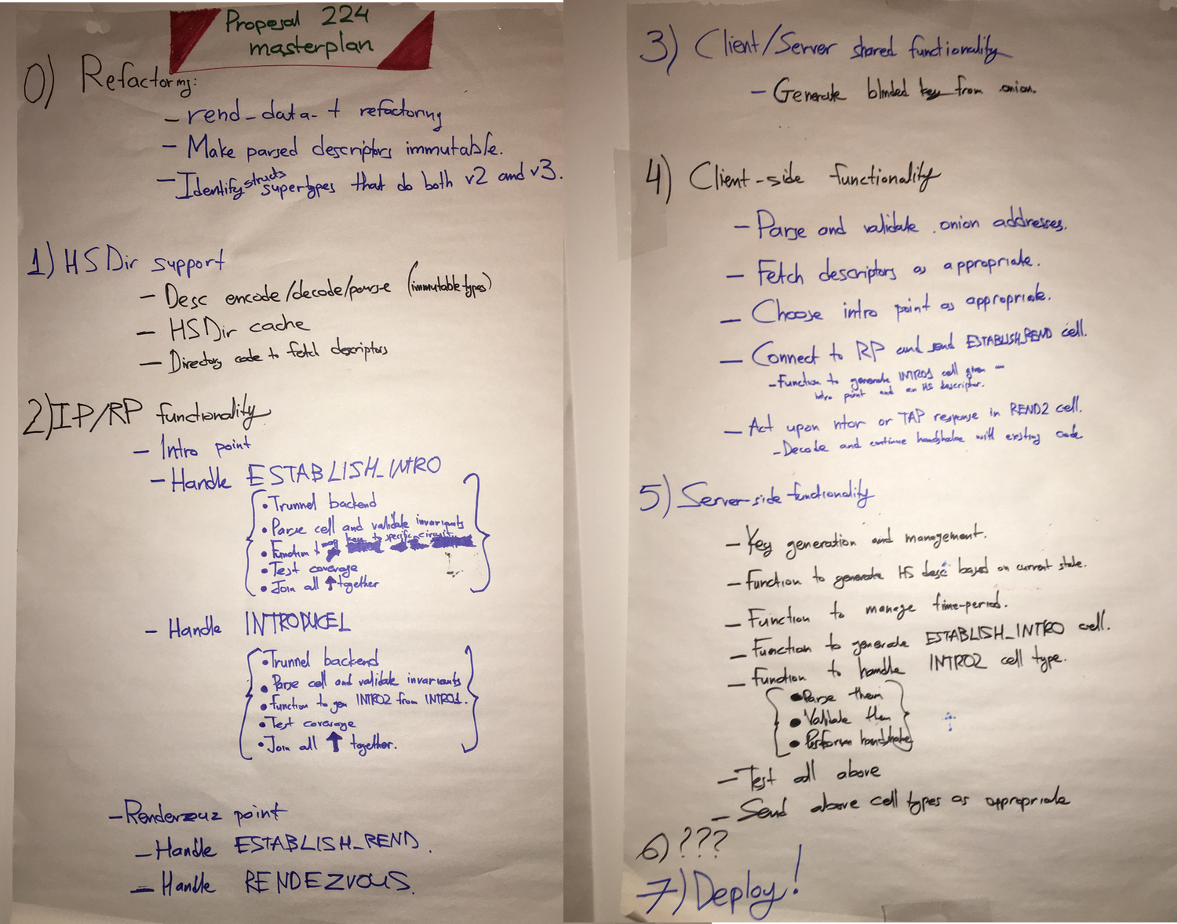 Proposal 224
masterplan
0) Refactoring:
- rend_data_t refactoring
- Make parsed descriptors immutable.
- Identify structs supertypes that do both v2 and v3.
1) HSDir support
- Desc encode/decode/parse (immutable types)
- HSDir cache
- Directory code to fetch descriptors
2) IP/RP functionality
- Intro point
- Handle ESTABLISH_INTRO
• Trunnel backend
• Parse cell and validate invariants
• Function to map keys to specific circuit
• Test coverage
• Join all ↑ together
- Handle INTRODUCE1
• Trunnel backend
• Parse cell and validate invariants
• Function to gen INTRO2 from INTRO1.
• Test coverage
• Join all ↑ together.
- Rendezouz point
- Handle ESTABLISH_REND.
- Handle RENDEZVOUS.
3) Client/Server shared functionality
- Generate blinded key from onion.
4) Client-side functionality
- Parse and validate .onion addresses.
- Fetch descriptors as appropriate.
- Choose intro point as appropriate.
- Connect to RP and send ESTABLISH_REND cell.
- Function to generate INTRO1 cell given an
intro point and an HS descriptor.
- Act upon ntor or TAP response in REND2 cell.
- Decode and continue handshake with existing code
5) Server-side functionality
- Key generation and management.
- Function to generate HS desc based on current state.
- Function to manage time-period.
- Function to generate ESTABLISH_INTRO cell.
- Function to handle INTRO2 cell type.
• Parse them
• Validate them
• Perform handshake
- Test all above
- Send above cell types as appropriate
6) ???
7) Deploy!